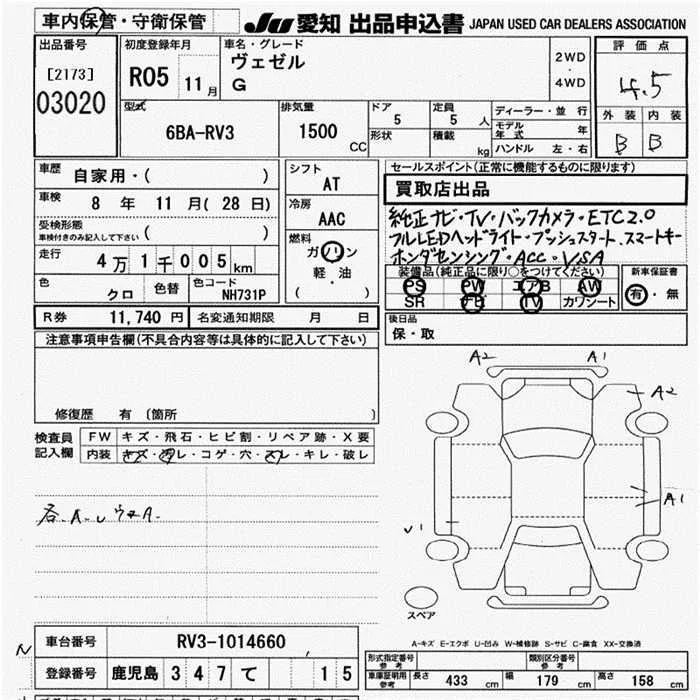 車内保管・守衛保管
JU 愛知 出品申込書 JAPAN USED CAR DEALERS ASSOCIATION
出品番号
[2173]
03020
初度登録年月
R05 11 月
車名・グレード
ヴェゼル
G
2WD
・
4WD
評価点
4.5
外装 内装
B B
型式
6BA-RV3
排気量
1500 CC
ドア
5
形状
定員
5 人
積載
kg
ディーラー・並行
モデル年式 年
ハンドル 左・右
車歴
自家用・( )
車検
8 年 11 月( 28 日)
受検形態
車検付きのみ記入して下さい ( )
走行
4 万 1 千 0 0 5 km
色
クロ
色替
色コード
NH731P
シフト
AT
冷房
AAC
燃料
ガソリン
軽・油
( )
R券 11,740 円
名変通知期限 月 日
セールスポイント(正常に機能するものに限ります)
買取店出品
純正ナビ・TV・バックカメラ・ETC2.0
フルLEDヘッドライト・プッシュスタート スマートキー
ホンダセンシング・ACC・VSA
装備品(純正品に限り○をつけてください)
PS PW エアB AW
SR TV カワシート
新車保証書
有・無
後日品
保・取
注意事項申告欄(不具合内容等は具体的に記入して下さい)
修復歴 有 〔箇所 〕
検査員
記入欄
FW キズ・飛石・ヒビ割・リペア跡・X要
内装 キズ・汚レ・コゲ・穴・スレ・キレ・破レ
A2 A1
A2
A1
U1
スペア
A-キズ E-エクボ U-凹み W-補修跡 S-サビ C-腐食 XX-交換済
車台番号 RV3-1014660
登録番号 鹿児島 3 4 7 て 1 5
形式指定番号
参考
類別区分番号
参考
車庫証明用
参考
長さ 433 cm 幅 179 cm 高さ 158 cm